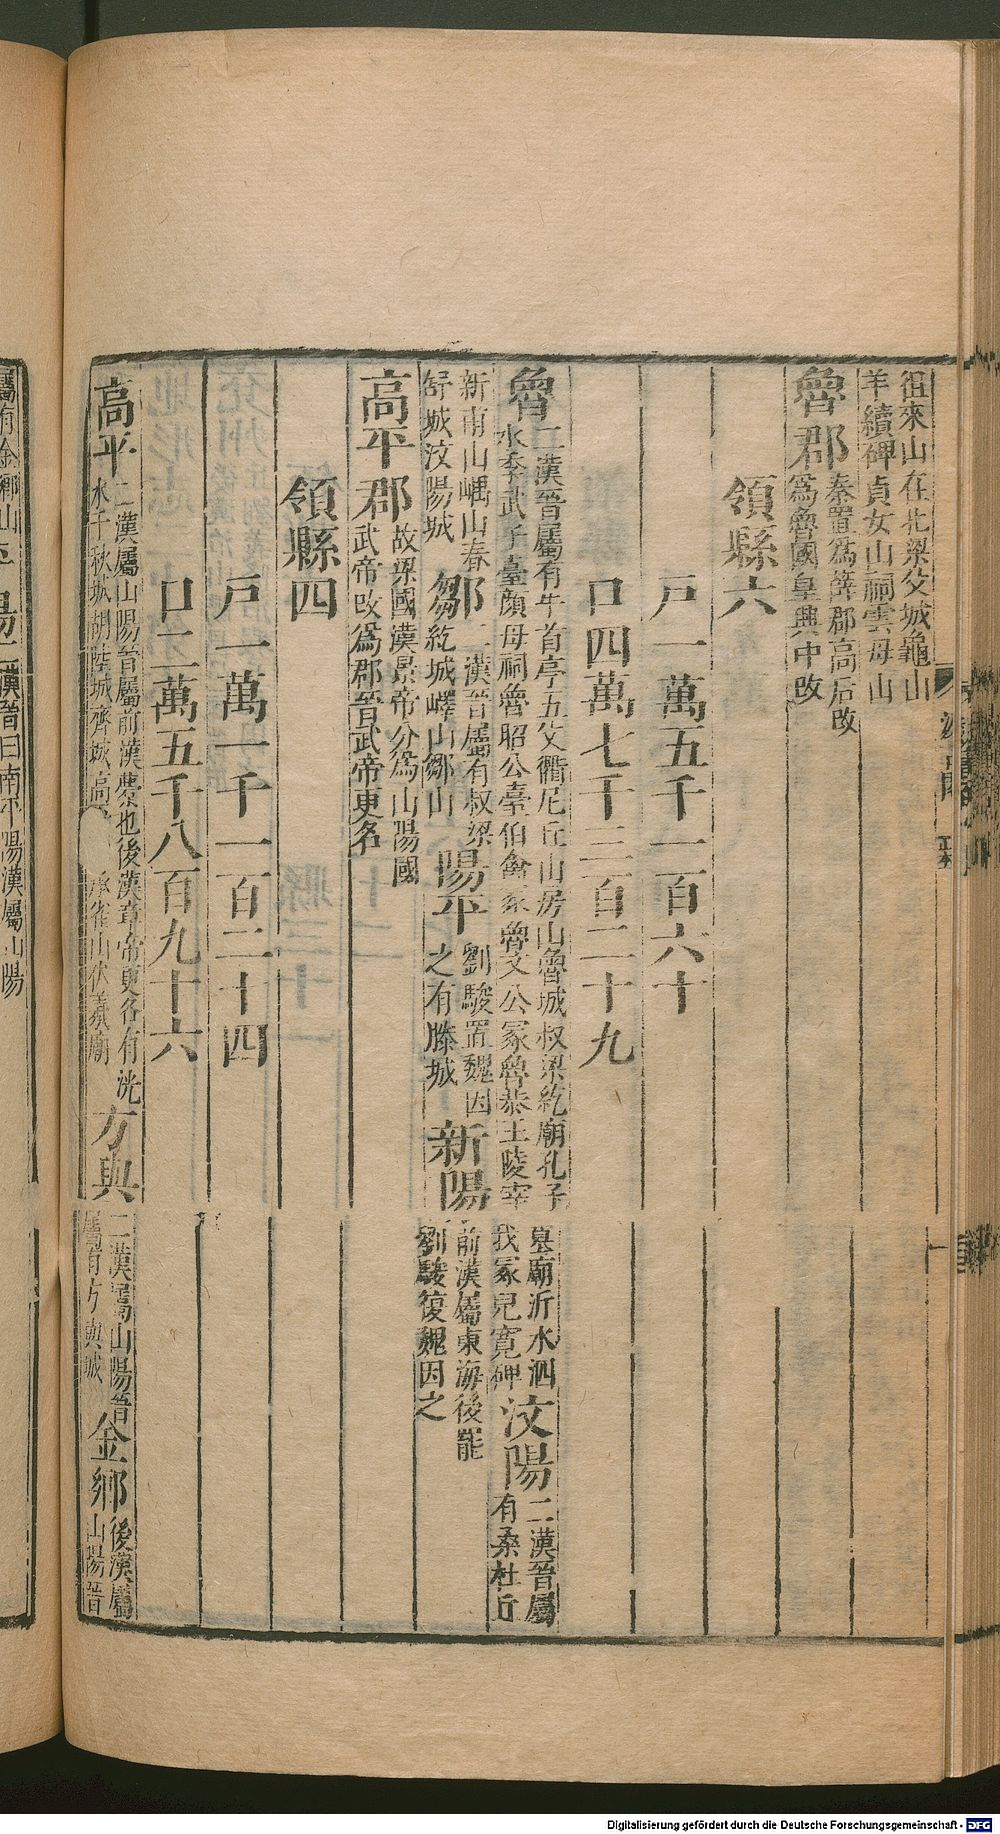 徂來山在北梁父城龜山
羊續碑貞女山祠雲母山
魯郡
秦置爲薛郡高后改
爲魯國皇興中改
領縣六
戸一萬五千一百六十
口四萬七千三百二十九
魯
二漢晉屬有牛首亭五父衢尼丘山房山魯城叔梁紇廟孔子
水季武子臺顔母祠魯昭公臺伯禽冢魯文公冢魯恭王陵宰
墓廟沂水泗
我冢兒寛碑
汶陽
二漢晉屬
有桑杜丘
新甫山嵎山春
舒城汶陽城
鄒
二漢晉屬有叔梁
紇城嶧山鄒山
陽平
劉駿置魏因
之有滕城
新陽
前漢屬東海後罷
劉駿復魏因之
高平郡
故梁國漢景帝分爲山陽國
武帝改爲郡晉武帝更名
領縣四
戸一萬一千一百二十四
口二萬五千八百九十六
高平
二漢屬山陽晉屬前漢橐也後漢章帝更名有洸
水千秋城胡陸城齊城高平 承雀山伏羲廟
方與
二漢屬山陽晉
屬有方與城
金鄉
後漢屬
山陽晉
屬有金鄉山
二漢晉曰南平陽漢屬山陽
Digitalisierung gefördert durch die Deutsche Forschungsgemeinschaft - DFG